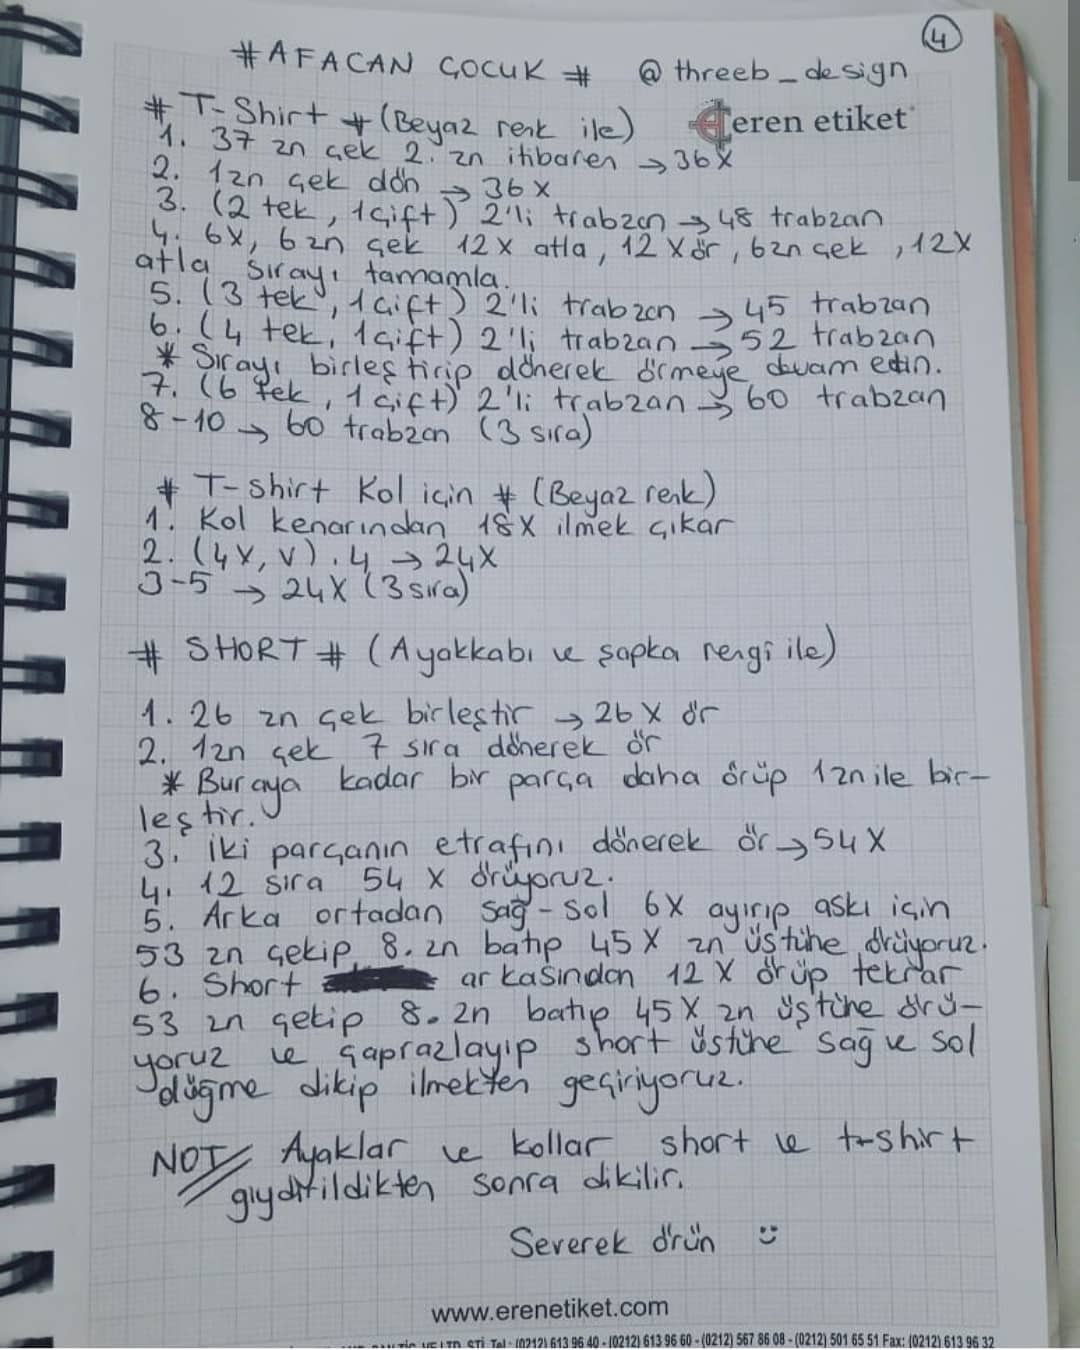 4
#AFACAN ÇOCUK # @threeb_design
# T-Shirt # (Beyaz renk ile) eren etiket
1. 37 zn çek 2. zn itibaren → 36X
2. 1zn çek dön → 36X
3. (2 tek, 1çift) 2'li trabzan → 48 trabzan
4. 6X, 6zn çek 12X atla, 12X ör, 6zn çek, 12X
atla sırayı tamamla.
5. (3 tek, 1çift) 2'li trabzan → 45 trabzan
6. (4 tek, 1çift) 2'li trabzan → 52 trabzan
* Sırayı birleştirip dönerek örmeye devam edin.
7. (6 tek, 1çift) 2'li trabzan → 60 trabzan
8-10 → 60 trabzan (3 sıra)
# T-shirt Kol için # (Beyaz renk)
1. Kol kenarından 18X ilmek çıkar
2. (4X, V).4 → 24X
3-5 → 24X (3 sıra)
# SHORT # (Ayakkabı ve şapka rengi ile)
1. 26 zn çek birleştir → 26X ör
2. 1zn çek 7 sıra dönerek ör
* Buraya kadar bir parça daha örüp 1zn ile bir-
leştir.
3. İki parçanın etrafını dönerek ör → 54X
4. 12 sıra 54 X örüyoruz.
5. Arka ortadan sağ-sol 6X ayırıp askı için
53 zn çekip 8. zn batıp 45X zn üstüne örüyoruz.
6. Short arkasından 12X örüp tekrar
53 zn çekip 8. zn batıp 45X zn üstüne örü-
yoruz ve çaprazlayıp short üstüne sağ ve sol
düğme dikip ilmekten geçiriyoruz.
NOT/ Ayaklar ve kollar short ve t-shirt
giydirildikten sonra dikilir.
Severek örün :)
www.erenetiket.com
LTD. ŞTİ. Tel: (0212) 613 96 40 - (0212) 613 96 60 - (0212) 567 86 08 - (0212) 501 65 51 Fax: (0212) 613 96 32